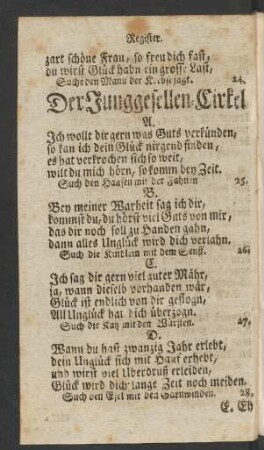 Register.
zart schöne Frau, so freu dich fast,
du wirst Glück habn ein grosse Last,
Such den Mann der Krebse jagt. 24.
Der Junggesellen-Cirkel
A.
Ich wollt dir gern was Guts verkünden,
so kan ich dein Glück nirgend finden,
es hat verkrochen sich so weit,
wilt du mich hörn, so komm bey Zeit.
Such den Haasen mit der Fahnen 25.
B.
Bey meiner Warheit sag ich dir,
kommst du, du hörst viel Guts von mir,
das dir noch soll zu Handen gahn,
dann alles Unglück wird dich verlahn.
Such die Kindlein mit dem Senff. 26.
C.
Ich sag dir gern viel guter Mähr,
ja, wann dieselb vorhanden wär,
Glück ist endlich von dir geflogn,
All Unglück hat dich überzogn.
Such die Katz mit den Würsten. 27.
D.
Wann du hast zwanzig Jahr erlebt,
dein Unglück sich mit Hauf erhebt,
und wirst viel Uberdruß erleiden,
Glück wird dich langt Zeit noch meiden.
Such den Esel mit den Garnwinden. 28.
E. Eh